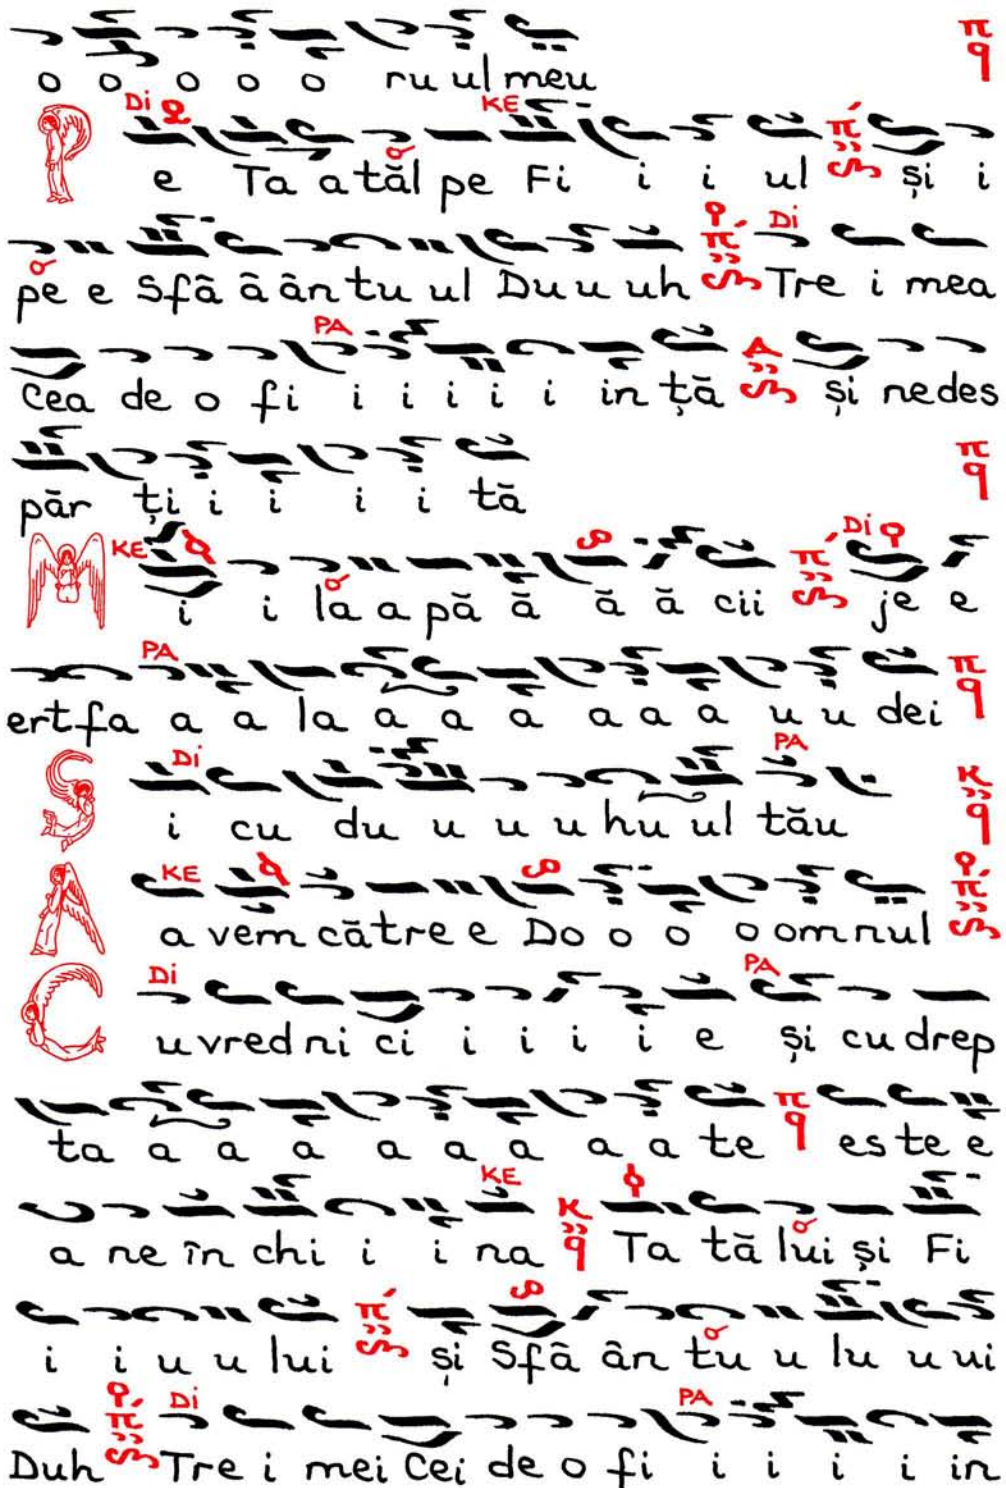 o o o o o ru ul meu π q
Di KE
P e Ta a tăl pe Fi i i ul și i
pe e Sfâ â ân tu ul Du u uh Di Tre i mea
PA
Cea de o fi i i i i i in ță și nedes
păr ți i i i i tă π q
KE Di
M i i la a pă ă ă ă cii je e
PA
ert fa a a la a a a a a a u u dei π q
Di PA
S i cu du u u u hu ul tău
KE
A a vem către e Do o o o omnul
Di PA
C u vred ni ci i i i i e și cu drep
ta a a a a a a a a te π q es te e
KE
a ne în chi i i na Ta tă lui și Fi
i i u u lui și Sfâ ân tu u lu u ui
Di PA
Duh Tre i mei Cei de o fi i i i i in